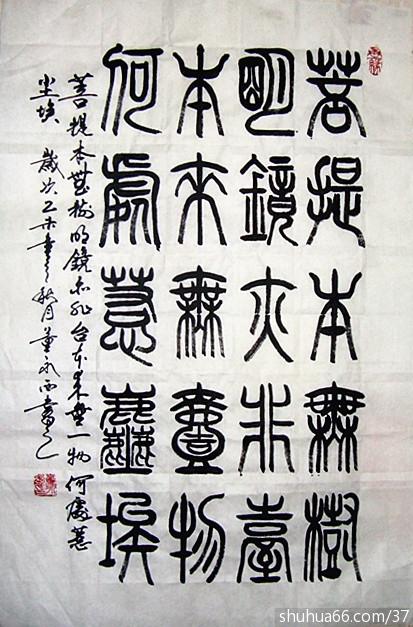 菩提本無樹
明鏡亦非臺
本來無壹物
何處惹塵埃
菩提本無樹明鏡亦非台本來無一物何處惹
尘埃 歲次乙未 秋月董永西書
shuhua66.com/37